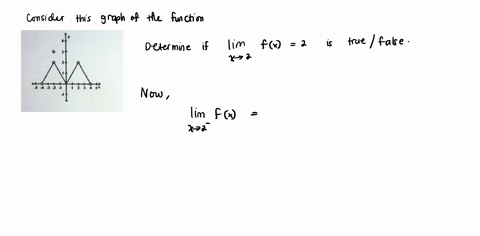 Consider this graph of the function
Determine if lim x→2 f(x) = 2 is true/false.
Now,
lim x→2⁻ f(x) =